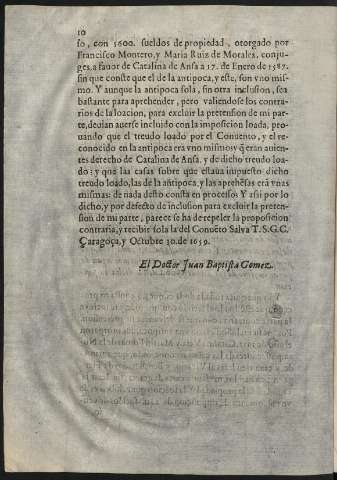 10
so, con 5600. sueldos de propiedad, otorgado por
Francisco Montero, y Maria Ruiz de Morales, conju-
ges, a fauor de Catalina de Ansa a 17. de Enero de 1587.
sin que conste que el de la antipoca, y este, son vno mis-
mo. Y aunque la antipoca sola, sin otra inclusion, sea
bastante para aprehender, pero valiendose los contra-
rios de la loacion, para excluir la pretension de mi par-
te, deuian auerse incluido con la imposicion loada, pro-
uando que el treudo loado por el Conuento, y el re-
conocido en la antipoca era vno mismo: y q̃ eran auien-
tes derecho de Catalina de Ansa, y de dicho treudo loa-
do: y que las casas sobre que estaua impuesto dicho
treudo loado, las de la antipoca, y las aprehẽsas erã vnas
mismas: de nada desto consta en processo: Y assi por lo
dicho, y por defecto de inclusion para excluir la preten-
sion de mi parte, parece se ha de repeler la proposicion
contraria, y recibir sola la del Conuẽto Salua T.S.G.C.
Çaragoça, y Octubre 30. de 1659.
El Doctor Juan Baptista Gomez.